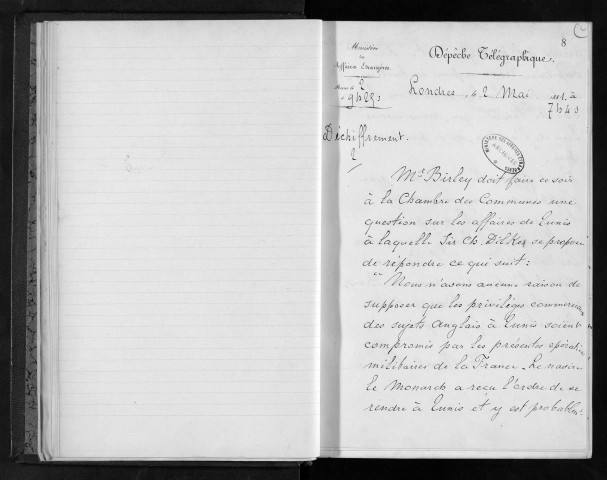 8
Ministère
des
Affaires Étrangères
Dépêche Télégraphique.
Londres, le 2 Mai 1881 à
7h 4s
2
9h 25s
Déchiffrement.
2
Mr. Birley doit faire ce soir
à la Chambre des Communes une
question sur les affaires de Tunis
à laquelle Sir Ch. Dilke se propose
de répondre ce qui suit :
"Nous n'avons aucune raison de
supposer que les privilèges commerciaux
des sujets Anglais à Tunis soient
compromis par les présentes opérations
militaires de la France. Le navire
le Monarch a reçu l'ordre de se
rendre à Tunis et y est probablemt